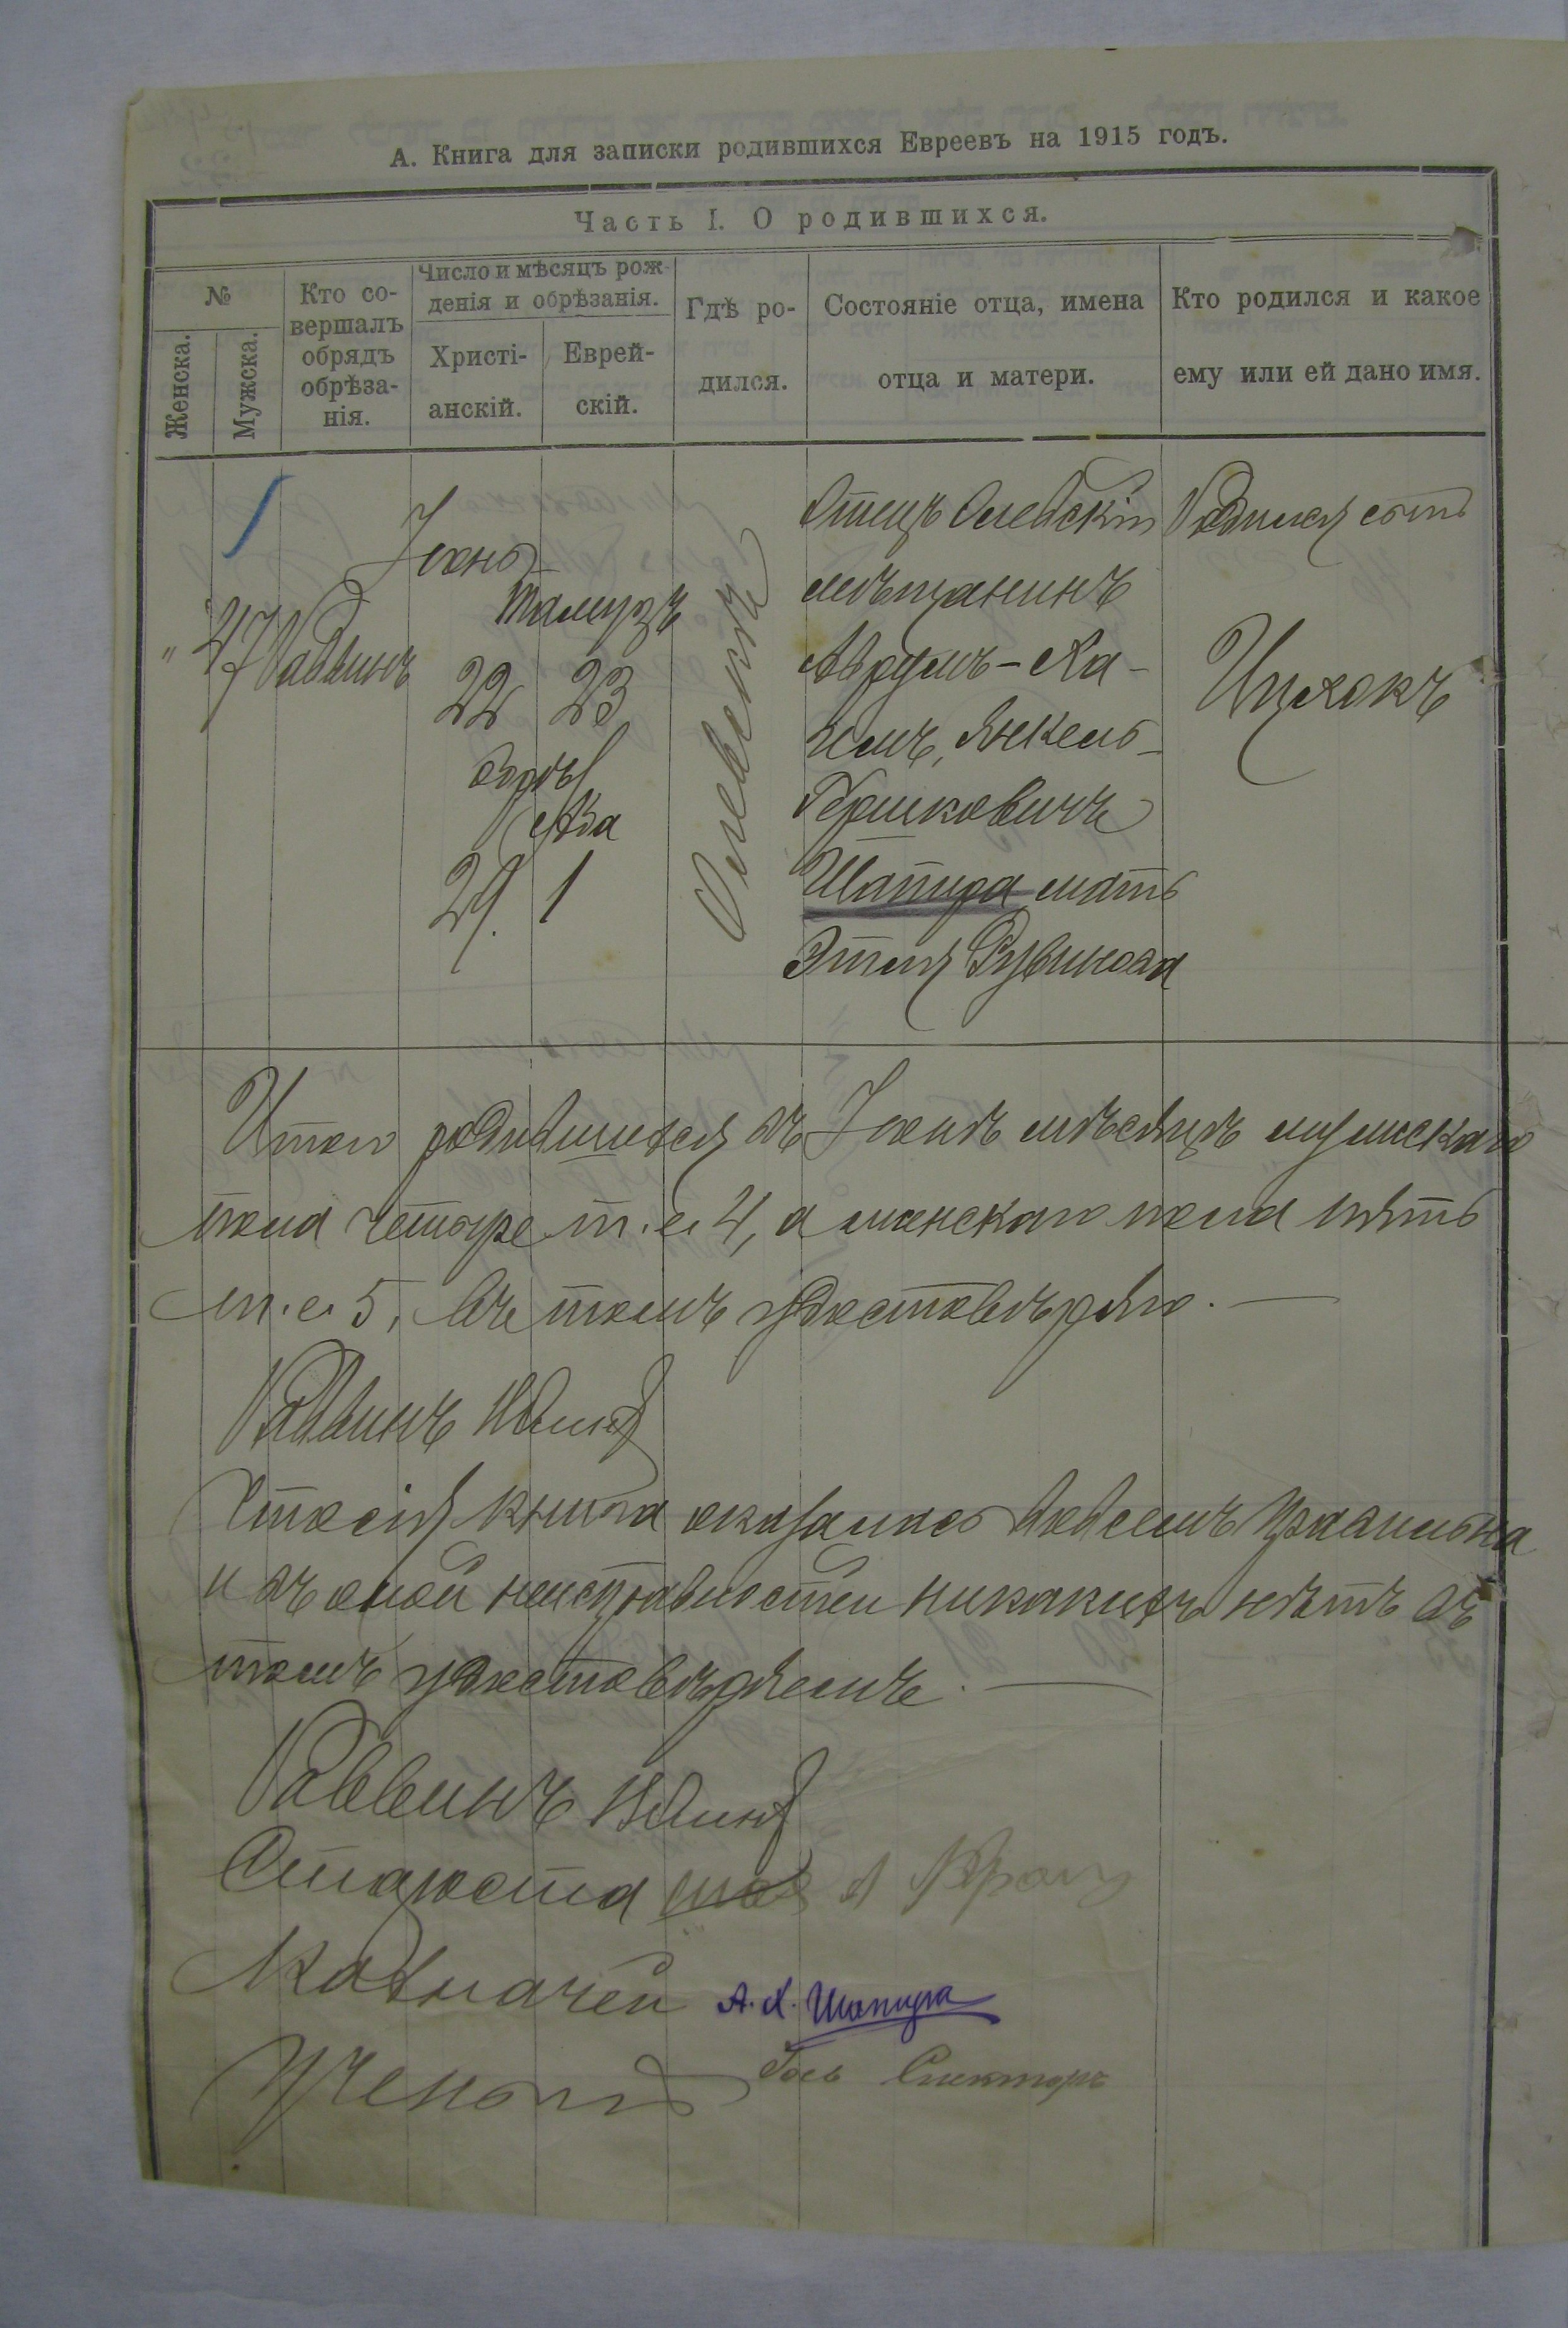 А. Книга для записки родившихся Евреевъ на 1915 годъ.
Часть I. О родившихся.
№
Женска.
Мужска.
Кто со-
вершалъ
обрядъ
обрѣза-
нія.
Число и мѣсяцъ рож-
денія и обрѣзанія.
Христі-
анскій.
Еврей-
скій.
Гдѣ ро-
дился.
Состояніе отца, имена
отца и матери.
Кто родился и какое
ему или ей дано имя.
" 27
Раввинъ
Іюнь
Тамузъ
22 23
29. 1
Олевскъ
Отецъ Олевскій
мѣщанинъ
Аврумъ-Ха-
имъ, Янкель-
Гершковичъ
Шапира мать
Этля Рувинова
Родился сынъ
Ицхокъ
Итого родившихся въ Іюнѣ мѣсяцѣ мужскаго
пола четыре т.е. 4, а женскаго пола пять
т.е. 5, въ томъ удостовѣряю.
Раввинъ
Что сія книга оказалась вовсемъ правильна
и въ оной неисправностей никакихъ нѣтъ въ
томъ удостовѣряемъ.
Раввинъ
Староста
Казначей А. Х. Шапира
Ученый
Спекторъ